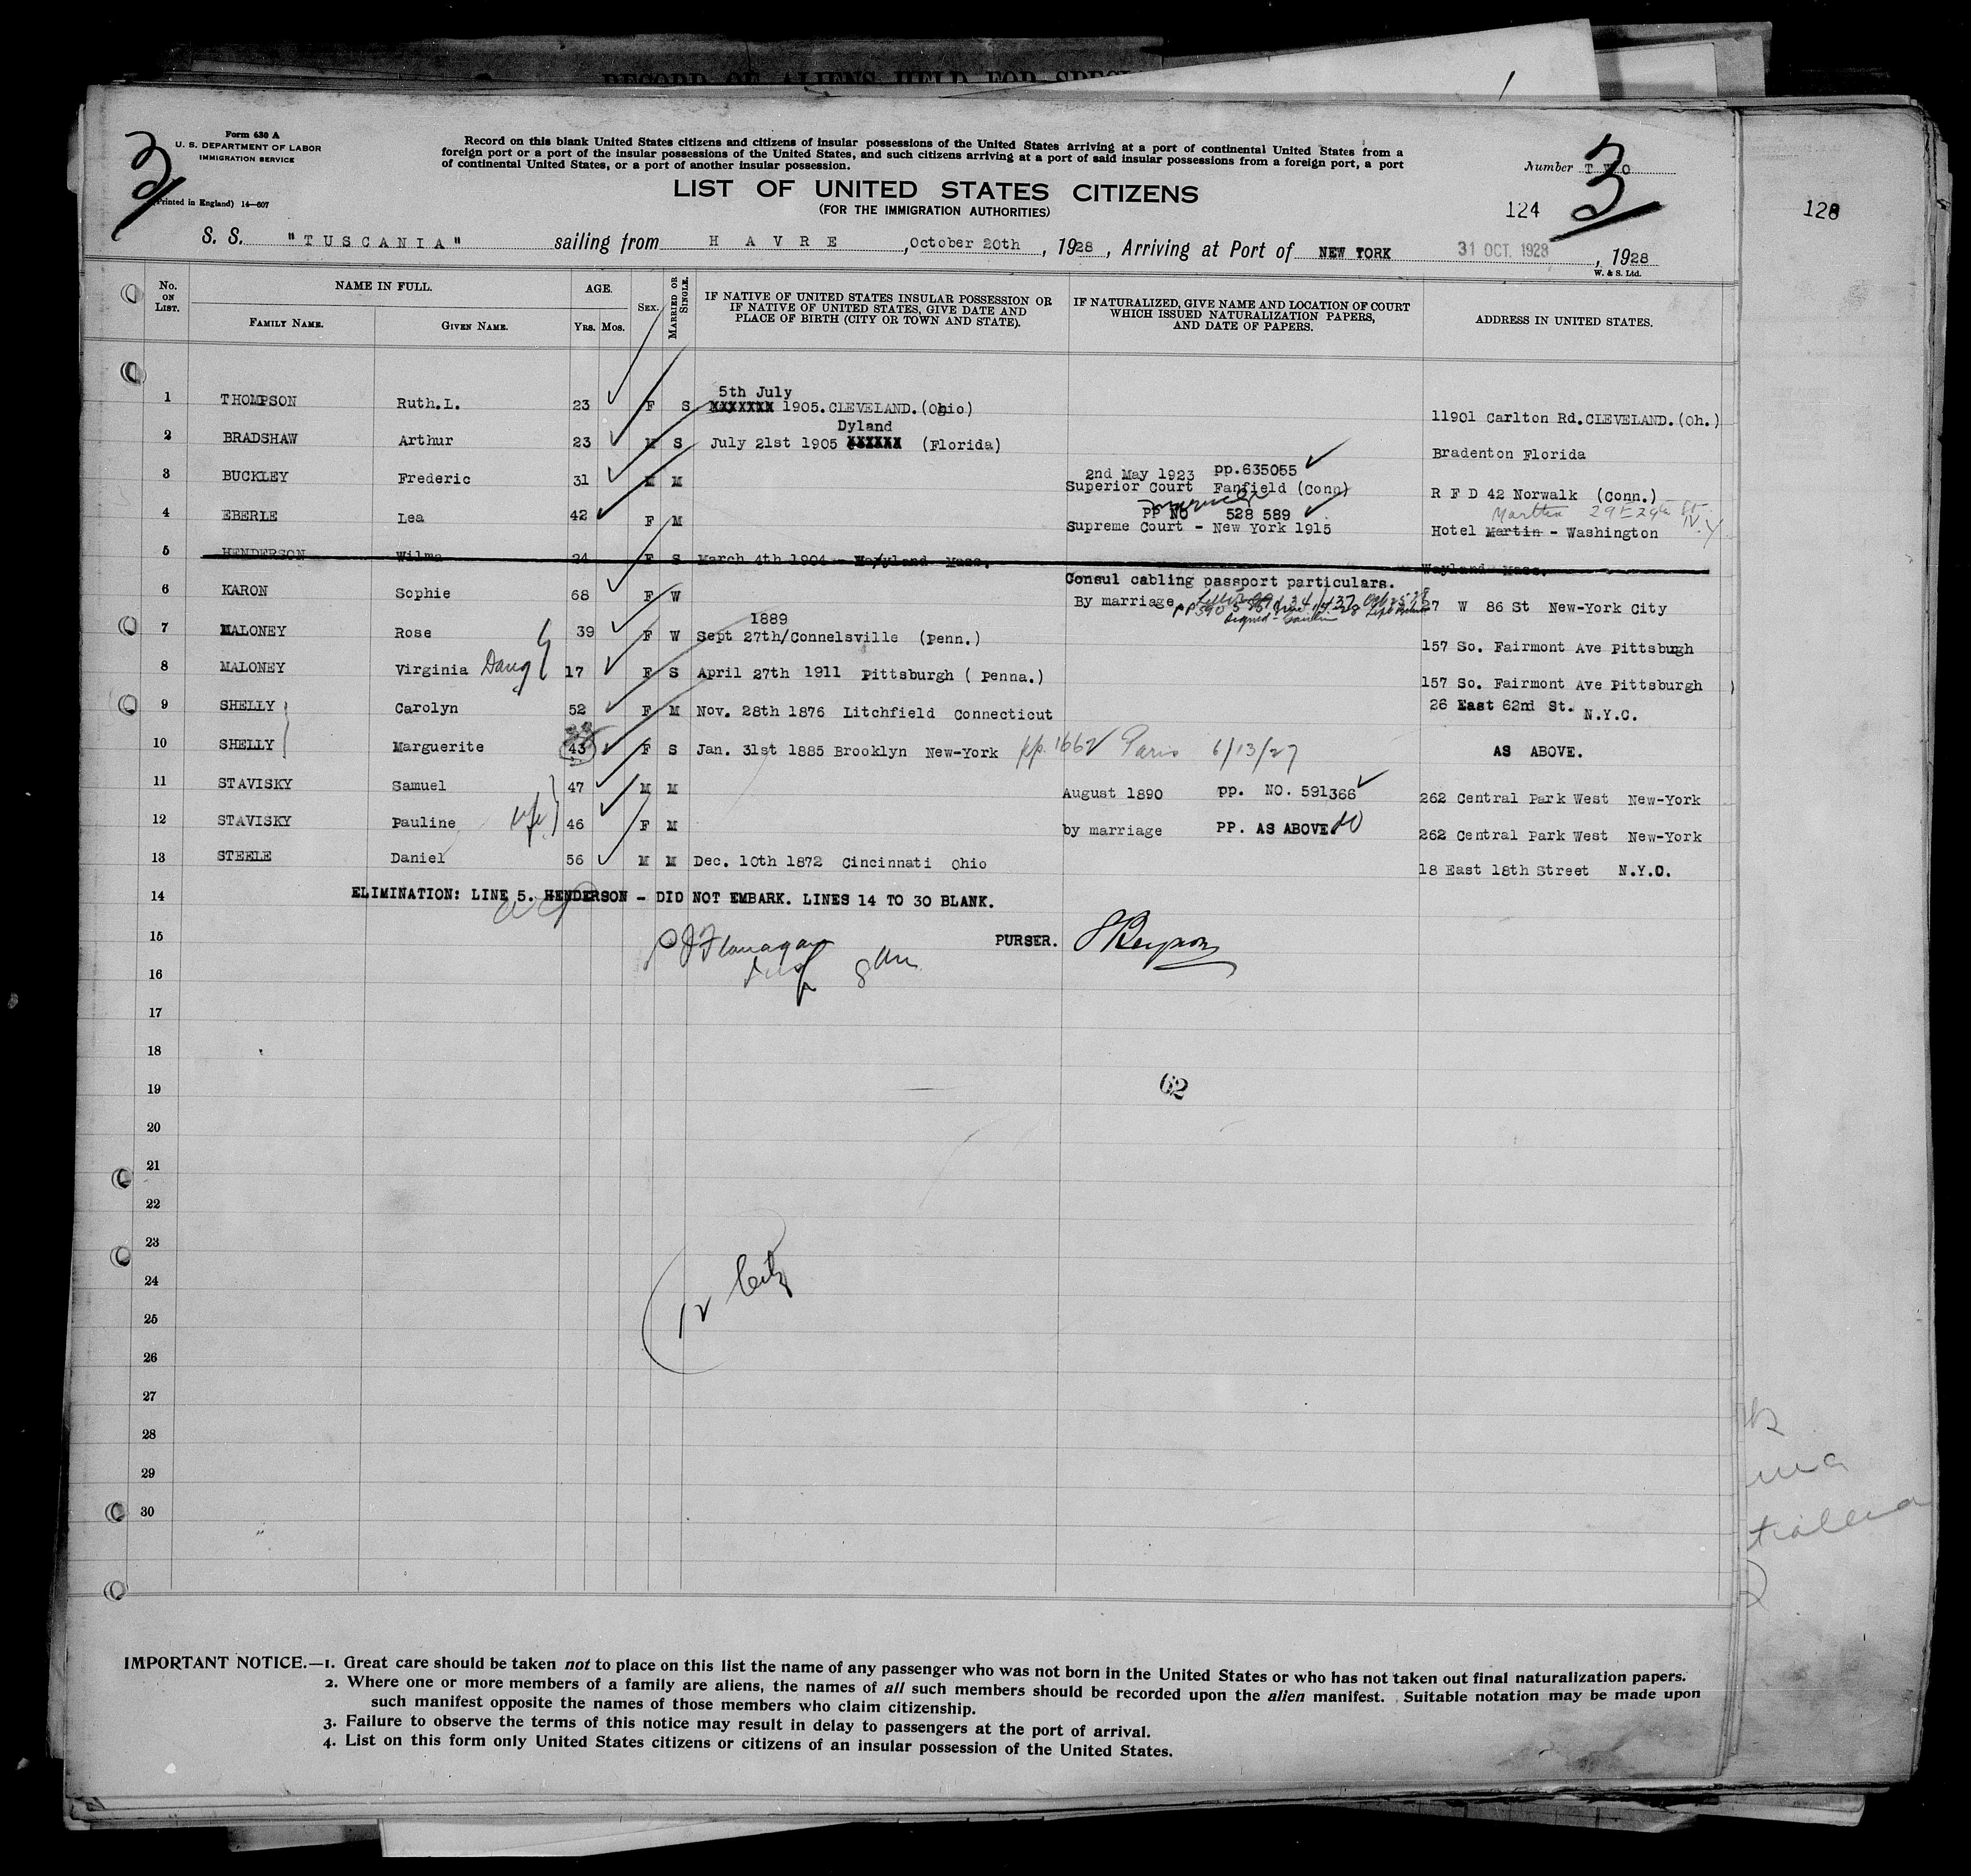 RECORD OF ALIENS HELD FOR
Form 630 A
U. S. DEPARTMENT OF LABOR
IMMIGRATION SERVICE
(Printed in England) 14—607
Record on this blank United States citizens and citizens of insular possessions of the United States arriving at a port of continental United States from a
foreign port or a port of the insular possessions of the United States, and such citizens arriving at a port of said insular possessions from a foreign port, a port
of continental United States, or a port of another insular possession.
LIST OF UNITED STATES CITIZENS
(FOR THE IMMIGRATION AUTHORITIES)
Number TWO
3
124
128
S. S. "TUSCANIA" sailing from HAVRE, October 20th, 1928, Arriving at Port of NEW YORK 31 OCT. 1928, 1928
W. & S. Ltd.
No. ON LIST. NAME IN FULL. AGE. SEX. MARRIED OR SINGLE. IF NATIVE OF UNITED STATES INSULAR POSSESSION OR IF NATIVE OF UNITED STATES, GIVE DATE AND PLACE OF BIRTH (CITY OR TOWN AND STATE). IF NATURALIZED, GIVE NAME AND LOCATION OF COURT WHICH ISSUED NATURALIZATION PAPERS, AND DATE OF PAPERS. ADDRESS IN UNITED STATES.
FAMILY NAME. GIVEN NAME. Yrs. Mos.
5th July
1 THOMPSON Ruth.L. 23 F S XXXXXXX 1905.CLEVELAND.(Ohio) 11901 Carlton Rd.CLEVELAND.(Oh.)
Dyland
2 BRADSHAW Arthur 23 M S July 21st 1905 XXXXXX (Florida) Bradenton Florida
2nd May 1923 pp.635055
3 BUCKLEY Frederic 31 M M Superior Court Fanfield (Conn) R F D 42 Norwalk (Conn.)
PP NO 528 589 Martha 29 E 29th St N.Y.
4 EBERLE Lea 42 F M Supreme Court - New York 1915 Hotel Martin - Washington
5 HENDERSON Wilma 24 F S March 4th 1904 - Wayland Mass. Wayland Mass.
Consul cabling passport particulars.
6 KARON Sophie 68 F W By marriage 27 W 86 St New-York City
1889
7 MALONEY Rose 39 F W Sept 27th/Connelsville (Penn.) 157 So. Fairmont Ave Pittsburgh
8 MALONEY Virginia Daug 17 F S April 27th 1911 Pittsburgh ( Penna.) 157 So. Fairmont Ave Pittsburgh
9 SHELLY Carolyn 52 F M Nov. 28th 1876 Litchfield Connecticut 26 East 62nd St. N.Y.C.
10 SHELLY Marguerite 43 F S Jan. 31st 1885 Brooklyn New-York pp. 1662 Paris 6/13/27 AS ABOVE.
11 STAVISKY Samuel 47 M M August 1890 pp. NO. 591366 262 Central Park West New-York
12 STAVISKY Pauline wife 46 F M by marriage PP. AS ABOVE 262 Central Park West New-York
13 STEELE Daniel 56 M M Dec. 10th 1872 Cincinnati Ohio 18 East 18th Street N.Y.C.
14 ELIMINATION: LINE 5. HENDERSON - DID NOT EMBARK. LINES 14 TO 30 BLANK.
15 Flanagan PURSER.
16
17
18
19 62
20
21
22
23
24 12 Citz
25
26
27
28
29
30
IMPORTANT NOTICE.—1. Great care should be taken not to place on this list the name of any passenger who was not born in the United States or who has not taken out final naturalization papers.
2. Where one or more members of a family are aliens, the names of all such members should be recorded upon the alien manifest. Suitable notation may be made upon
such manifest opposite the names of those members who claim citizenship.
3. Failure to observe the terms of this notice may result in delay to passengers at the port of arrival.
4. List on this form only United States citizens or citizens of an insular possession of the United States.